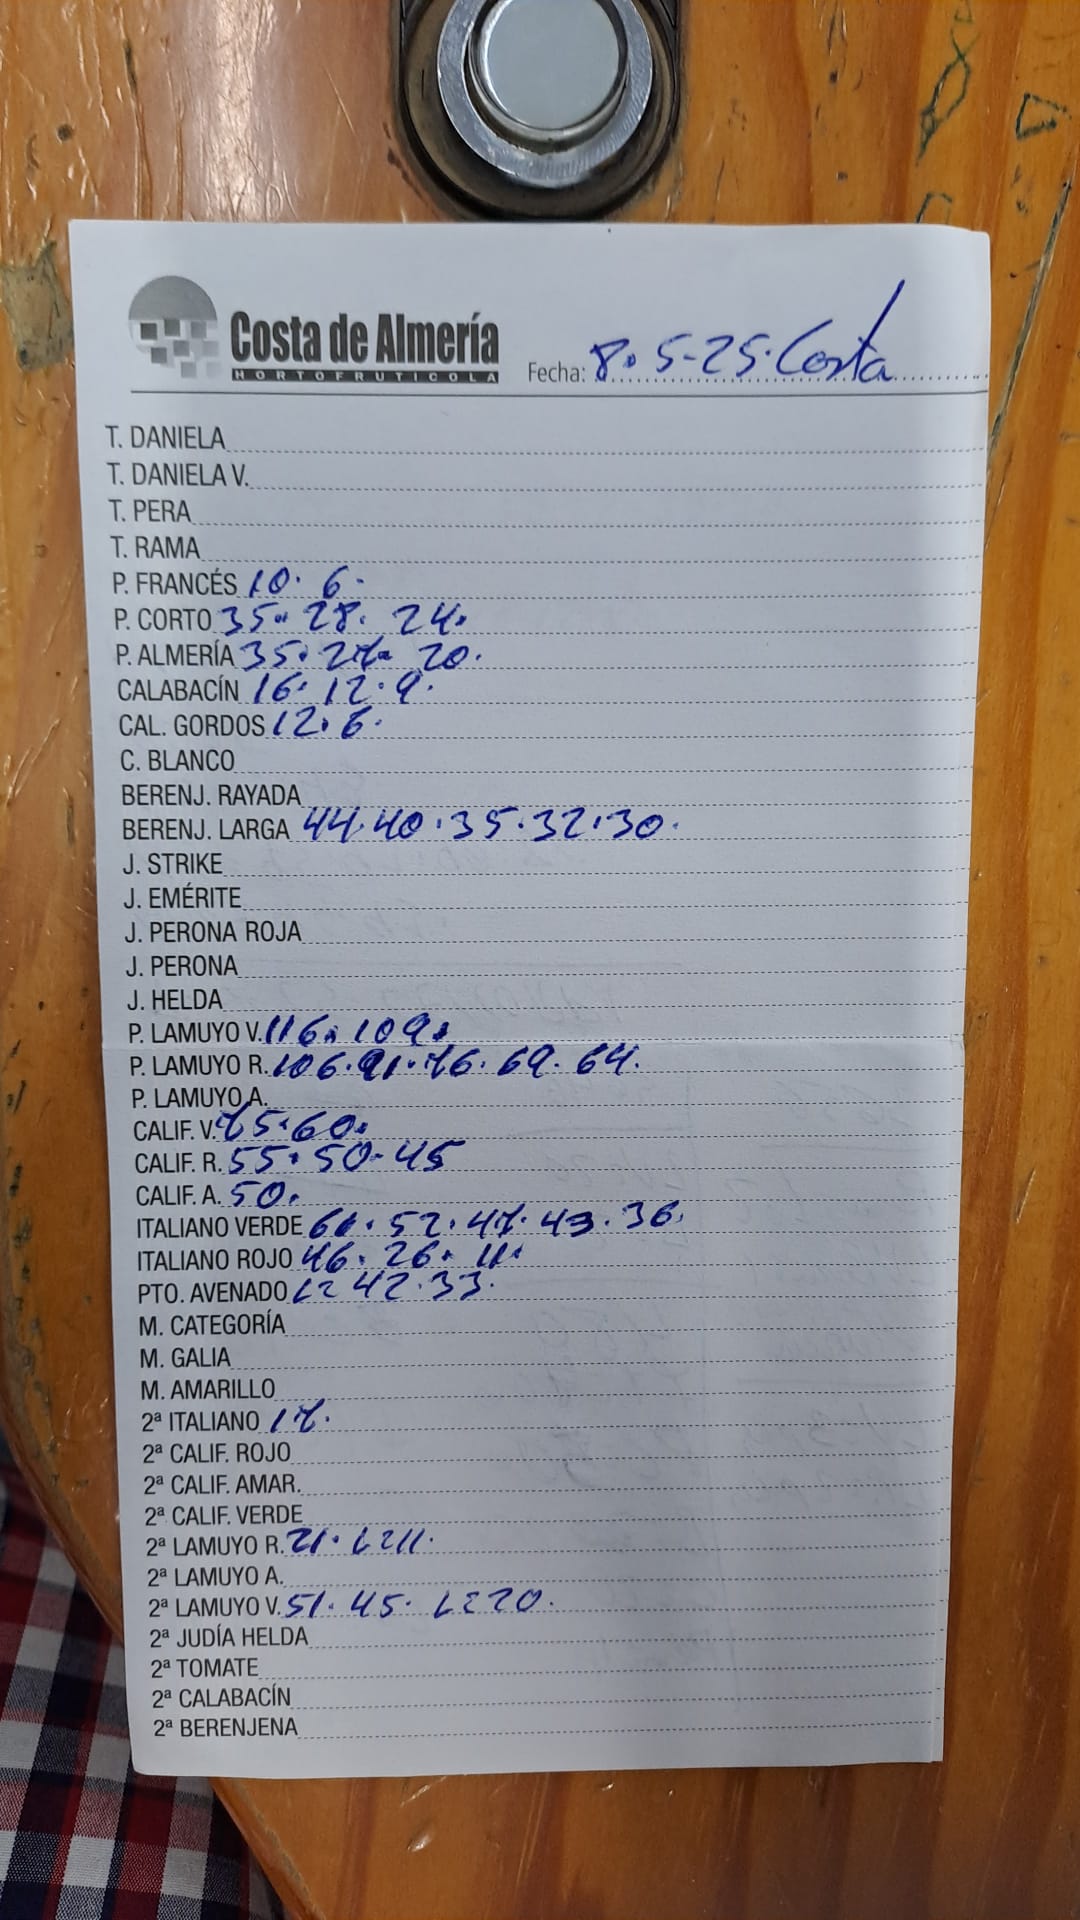 Costa de Almería
HORTOFRUTICOLA
Fecha: 8. 5-25. Costa
T. DANIELA
T. DANIELA V.
T. PERA
T. RAMA
P. FRANCÉS 10. 6.
P. CORTO 35. 28. 24.
P. ALMERÍA 35. 27. 20.
CALABACÍN 16. 12. 9.
CAL. GORDOS 12. 6.
C. BLANCO
BERENJ. RAYADA
BERENJ. LARGA 44. 40. 35. 32. 30.
J. STRIKE
J. EMÉRITE
J. PERONA ROJA
J. PERONA
J. HELDA
P. LAMUYO V. 116. 109.
P. LAMUYO R. 106. 91. 76. 69. 64.
P. LAMUYO A.
CALIF. V. 75. 60.
CALIF. R. 55. 50. 45
CALIF. A. 50.
ITALIANO VERDE 61. 52. 47. 43. 36.
ITALIANO ROJO 46. 26. 11.
PTO. AVENADO 42. 33.
M. CATEGORÍA
M. GALIA
M. AMARILLO
2ª ITALIANO 17.
2ª CALIF. ROJO
2ª CALIF. AMAR.
2ª CALIF. VERDE
2ª LAMUYO R. 21.
2ª LAMUYO A.
2ª LAMUYO V. 51. 45.
2ª JUDÍA HELDA
2ª TOMATE
2ª CALABACÍN
2ª BERENJENA